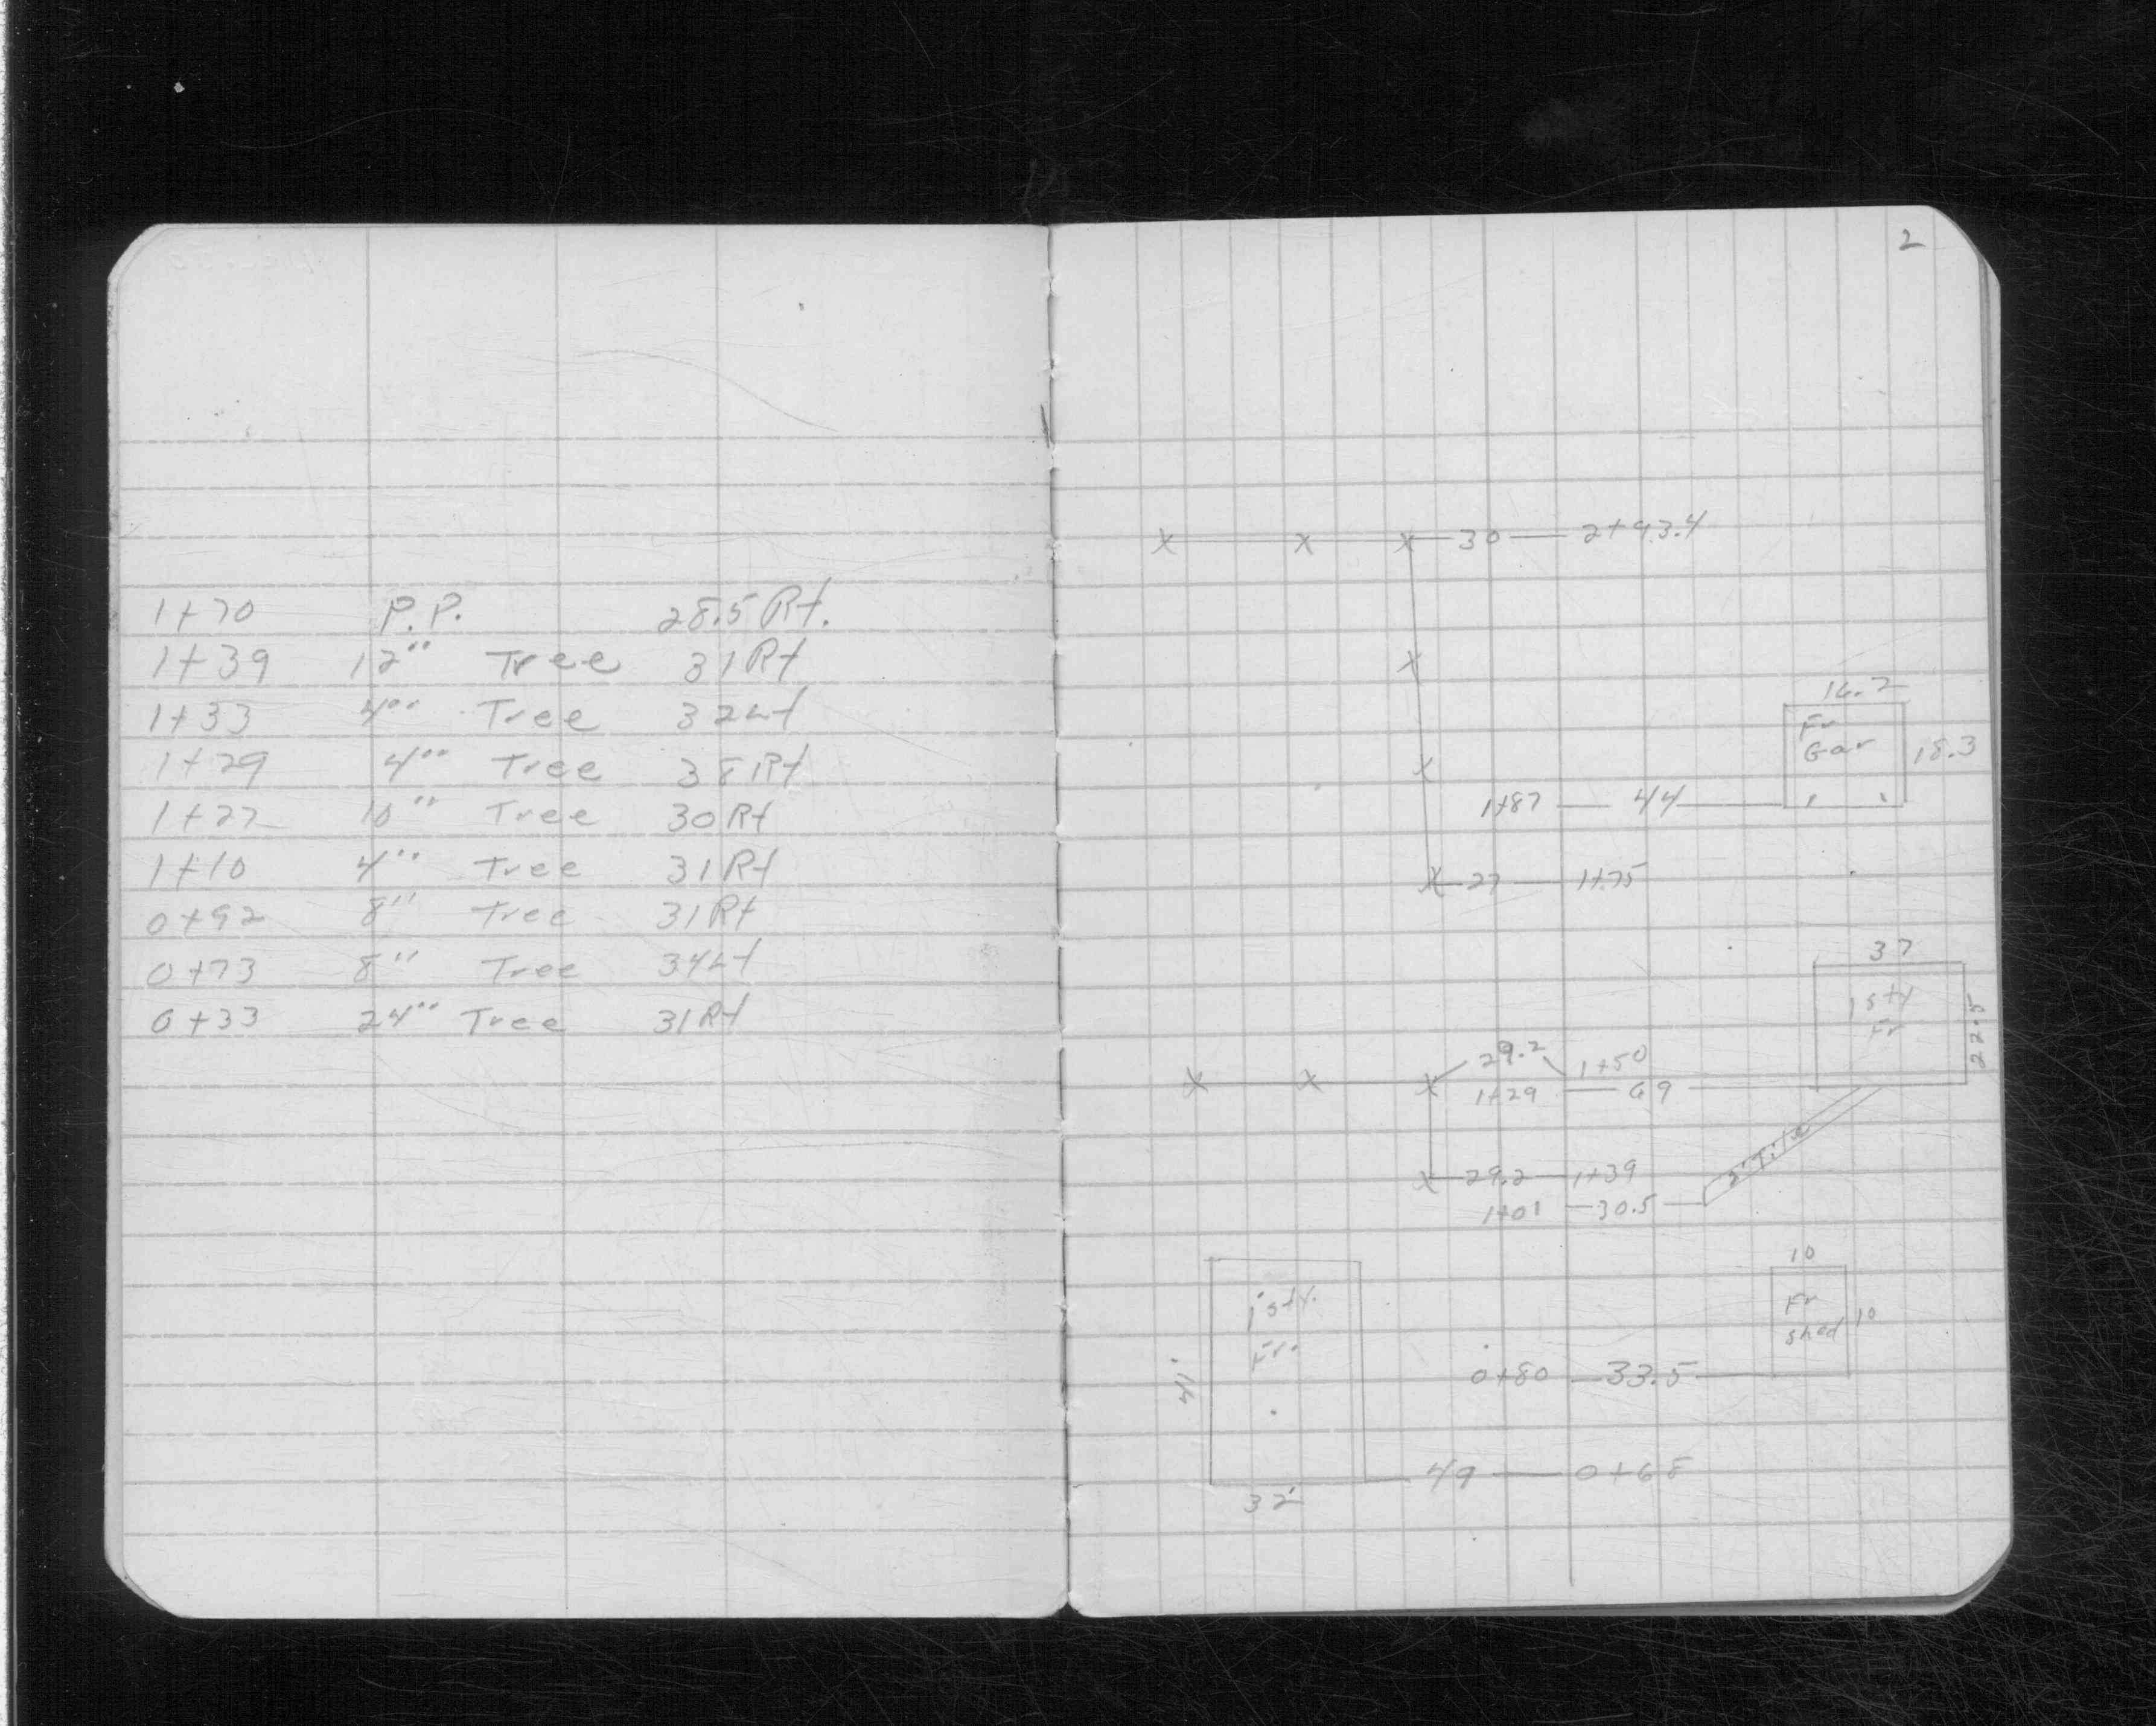 1+70 P.P. 28.5 Rt.
1+39 12" Tree 31 Rt
1+33 4" Tree 32 Lt
1+29 4" Tree 38 Rt
1+22 10" Tree 30 Rt
1+10 4" Tree 31 Rt
0+92 8" Tree 31 Rt
0+73 8" Tree 34 Lt
0+33 24" Tree 31 Rt
2
x x x 30 2+93.4
x
16.2
Fr
Gar
18.3
x
1+87 44
x 27 1+75
37
1 sty
Fr
22.5
29.2 1+50
x x x 1+29 69
2' Tile
x 29.2 1+39
1+01 30.5
10
1 sty.
Fr.
Fr
shed
10
41
0+80 33.5
49 0+68
32'